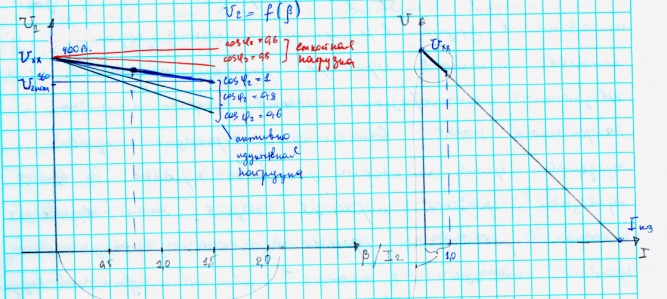 U₂ = f(β)
U₂
Uxx
400 В.
360
U₂ном
cosφ₂ = 0,6
cosφ₂ = 0,8
емкостная
нагрузка
cosφ₂ = 1
cosφ₂ = 0,8
cosφ₂ = 0,6
активно
нагрузка
0,5
1,0
1,5
2,0
β/I₂
U
Uxx
1,0
Iкз
I